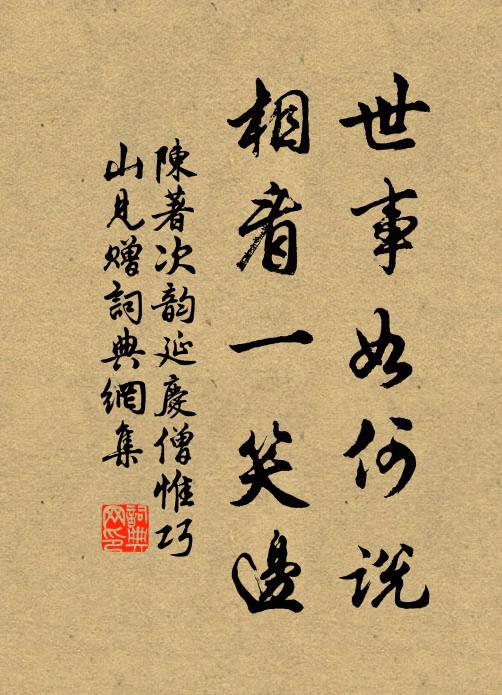 世事如何說
相看一笑邊
陳著次韵延慶僧惟巧
山見贈詞典網集
詞典網印